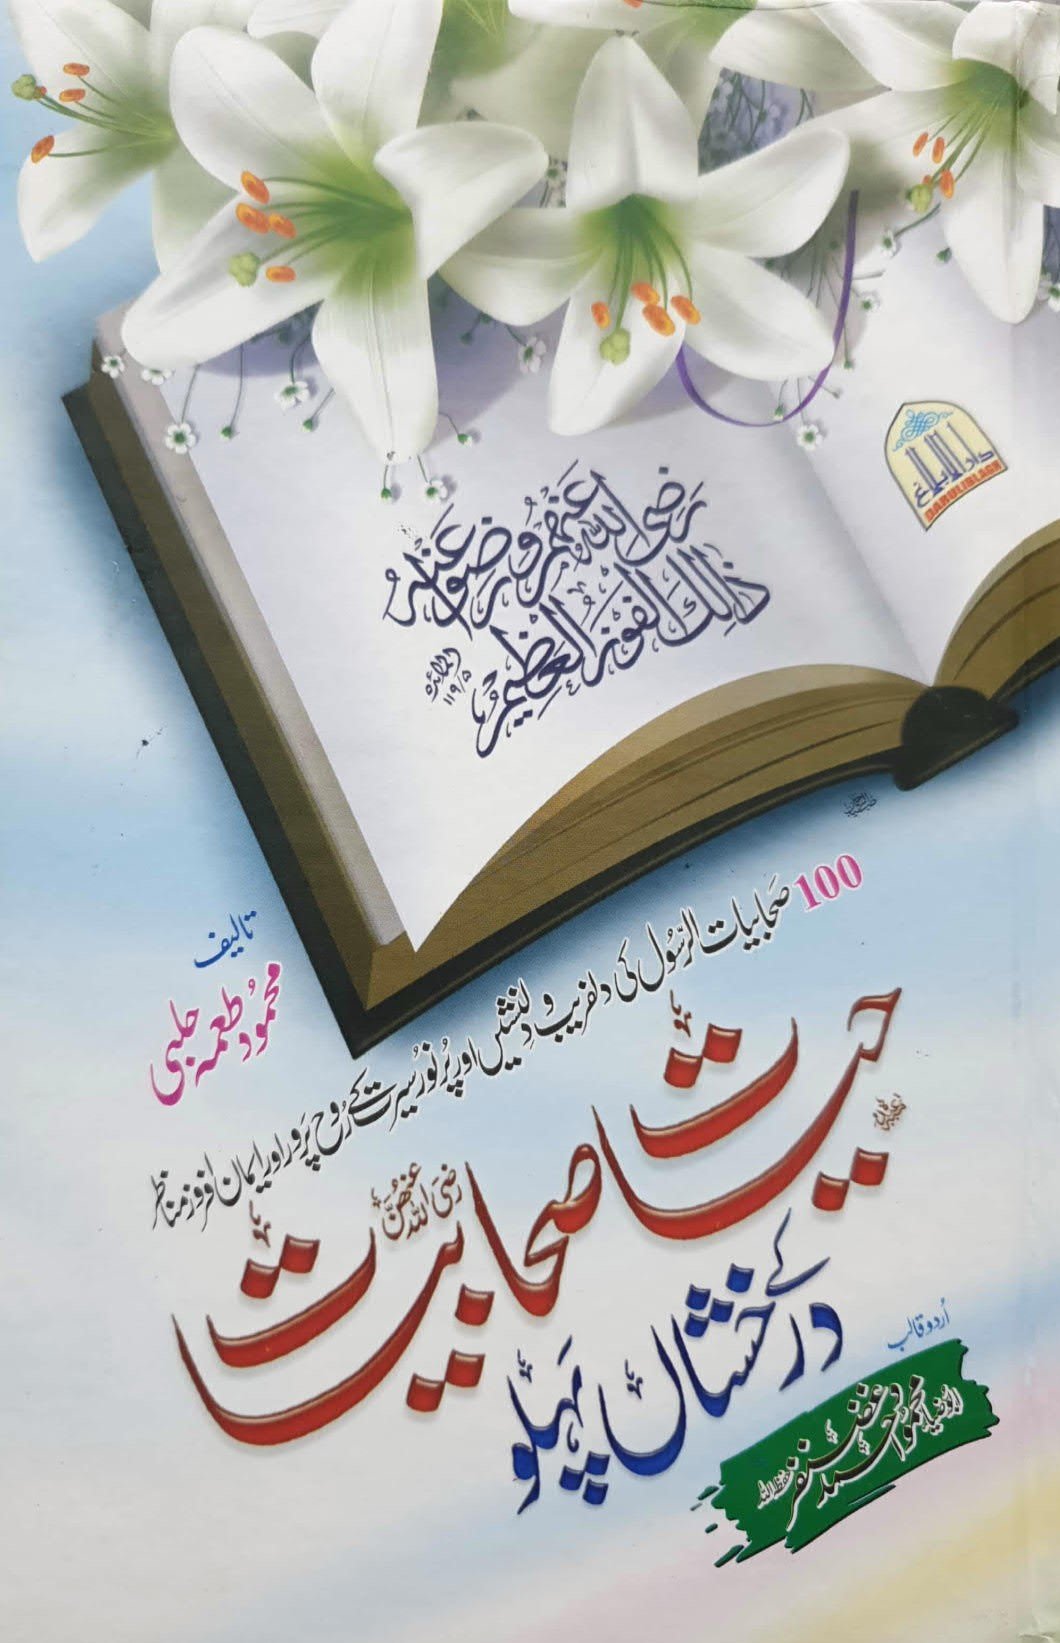 رَضِیَ اللّٰهُ عَنْهُمْ وَرَضُوْا عَنْهُ
ذٰلِكَ الْفَوْزُ الْعَظِیْمُ
المائدہ
۱۱۹/۵
دارالابلاغ
DARULIBLAGH
100 صحابیات الرسول کی دلفریب و دلنشیں اور پُرنور سیرت کے روح پرور اور ایمان افروز مناظر
تالیف
محمود طعمہ حلبی
حیات صحابیات رضی اللہ عنھن
کے درخشاں پہلو
اُردو قالب
ابوضیاء محمود احمد غضنفر حفظہ اللہ